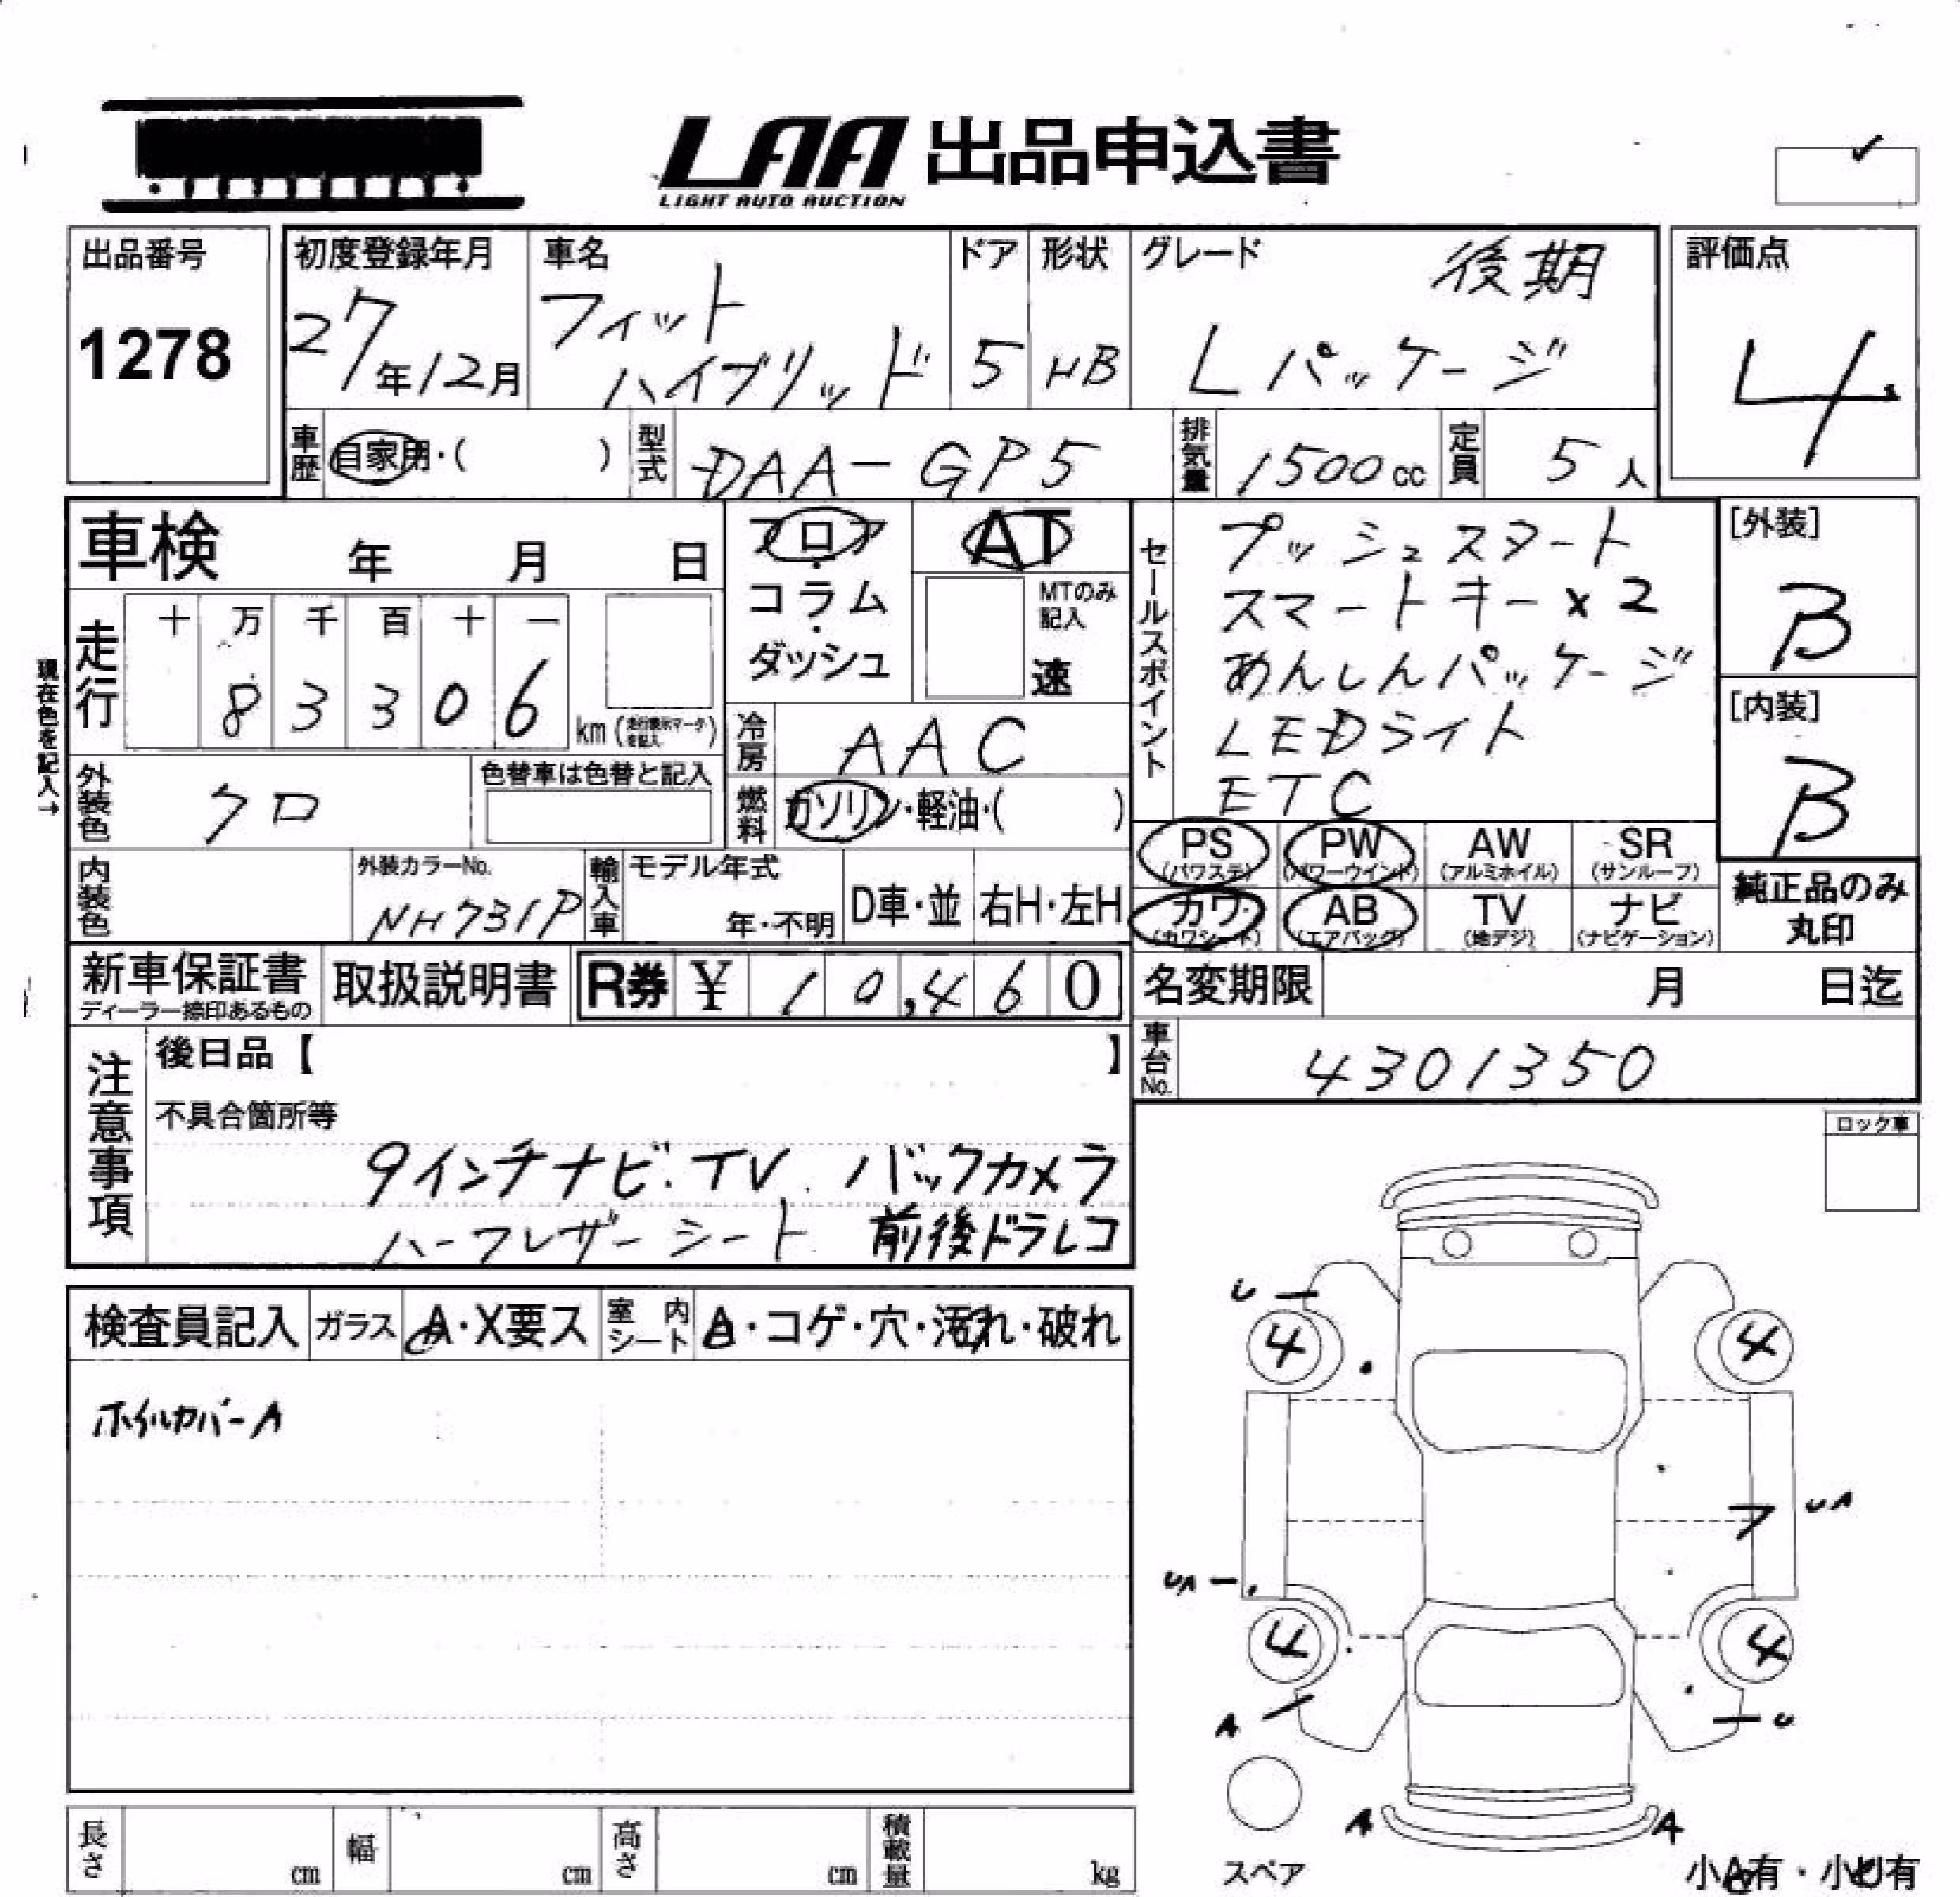 LAA 出品申込書
LIGHT AUTO AUCTION
出品番号
1278
初度登録年月
27年12月
車名
フィット
ハイブリッド
ドア
5
形状
HB
グレード
後期
Lパッケージ
評価点
4
車歴
自家用・( )
型式
DAA-GP5
排気量
1500cc
定員
5人
車検 年 月 日
走行
十 万 千 百 十 一
8 3 3 0 6
km
現在色を記入→
フロア
・
コラム
・
ダッシュ
AT
MTのみ
記入
速
冷房
AAC
燃料
ガソリン・軽油・( )
外装色
クロ
色替車は色替と記入
内装色
外装カラーNo.
NH731P
輸入車
モデル年式
年・不明
D車・並
右H・左H
セールスポイント
プッシュスタート
スマートキー×2
あんしんパッケージ
LEDライト
ETC
[外装]
B
[内装]
B
PS
(パワステ)
PW
(パワーウインド)
AW
(アルミホイル)
SR
(サンルーフ)
カワ
(カワシート)
AB
(エアバッグ)
TV
(地デジ)
ナビ
(ナビゲーション)
純正品のみ
丸印
新車保証書
ディーラー捺印あるもの
取扱説明書
R券 ¥ 10,460
名変期限 月 日迄
車台No.
4301350
注意事項
後日品【 】
不具合箇所等
9インチナビ.TV. バックカメラ
ハーフレザーシート 前後ドラレコ
ロック車
検査員記入
ガラス
A・X要ス
室内シート
A・コゲ・穴・汚れ・破れ
ホイルカバーA
U
4
4
UA
UA
4
4
A
U
A
A
スペア
小A有・小U有
長さ cm
幅 cm
高さ cm
積載量 kg